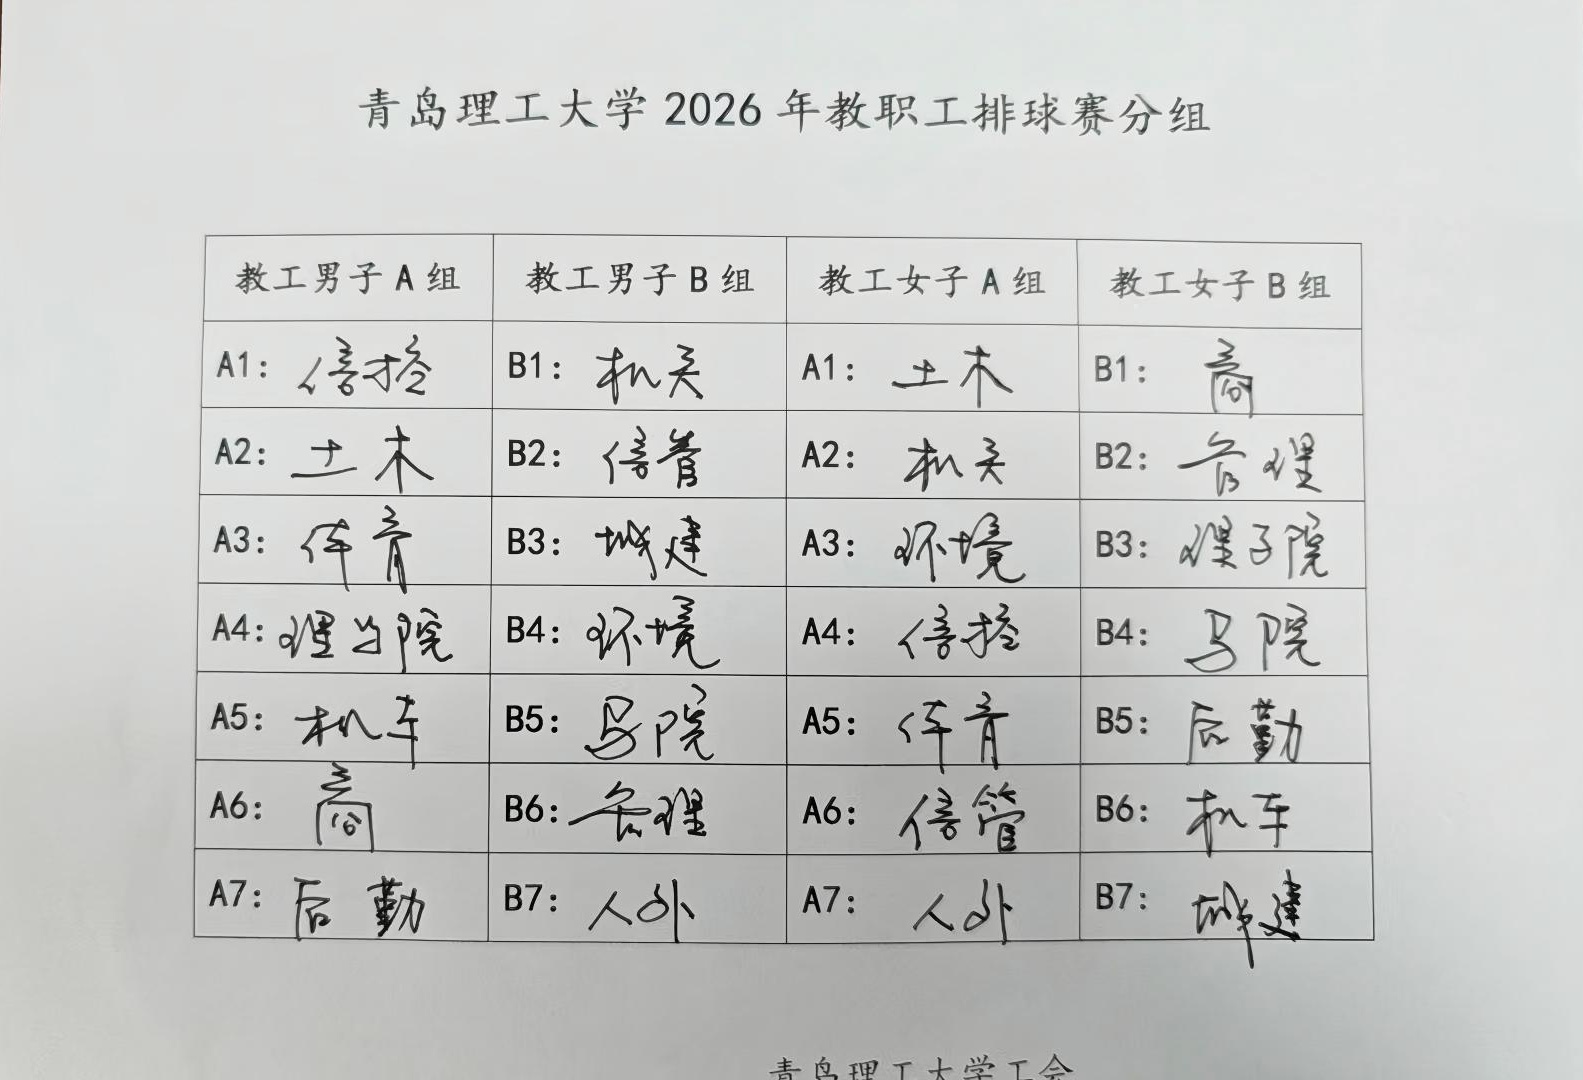 青岛理工大学 2026 年教职工排球赛分组
教工男子 A 组 教工男子 B 组 教工女子 A 组 教工女子 B 组
A1: 信控 B1: 机关 A1: 土木 B1: 商
A2: 土木 B2: 信管 A2: 机关 B2: 管理
A3: 体育 B3: 城建 A3: 环境 B3: 理学院
A4: 理学院 B4: 环境 A4: 信控 B4: 马院
A5: 机车 B5: 马院 A5: 体育 B5: 后勤
A6: 商 B6: 管理 A6: 信管 B6: 机车
A7: 后勤 B7: 人外 A7: 人外 B7: 城建
青岛理工大学工会